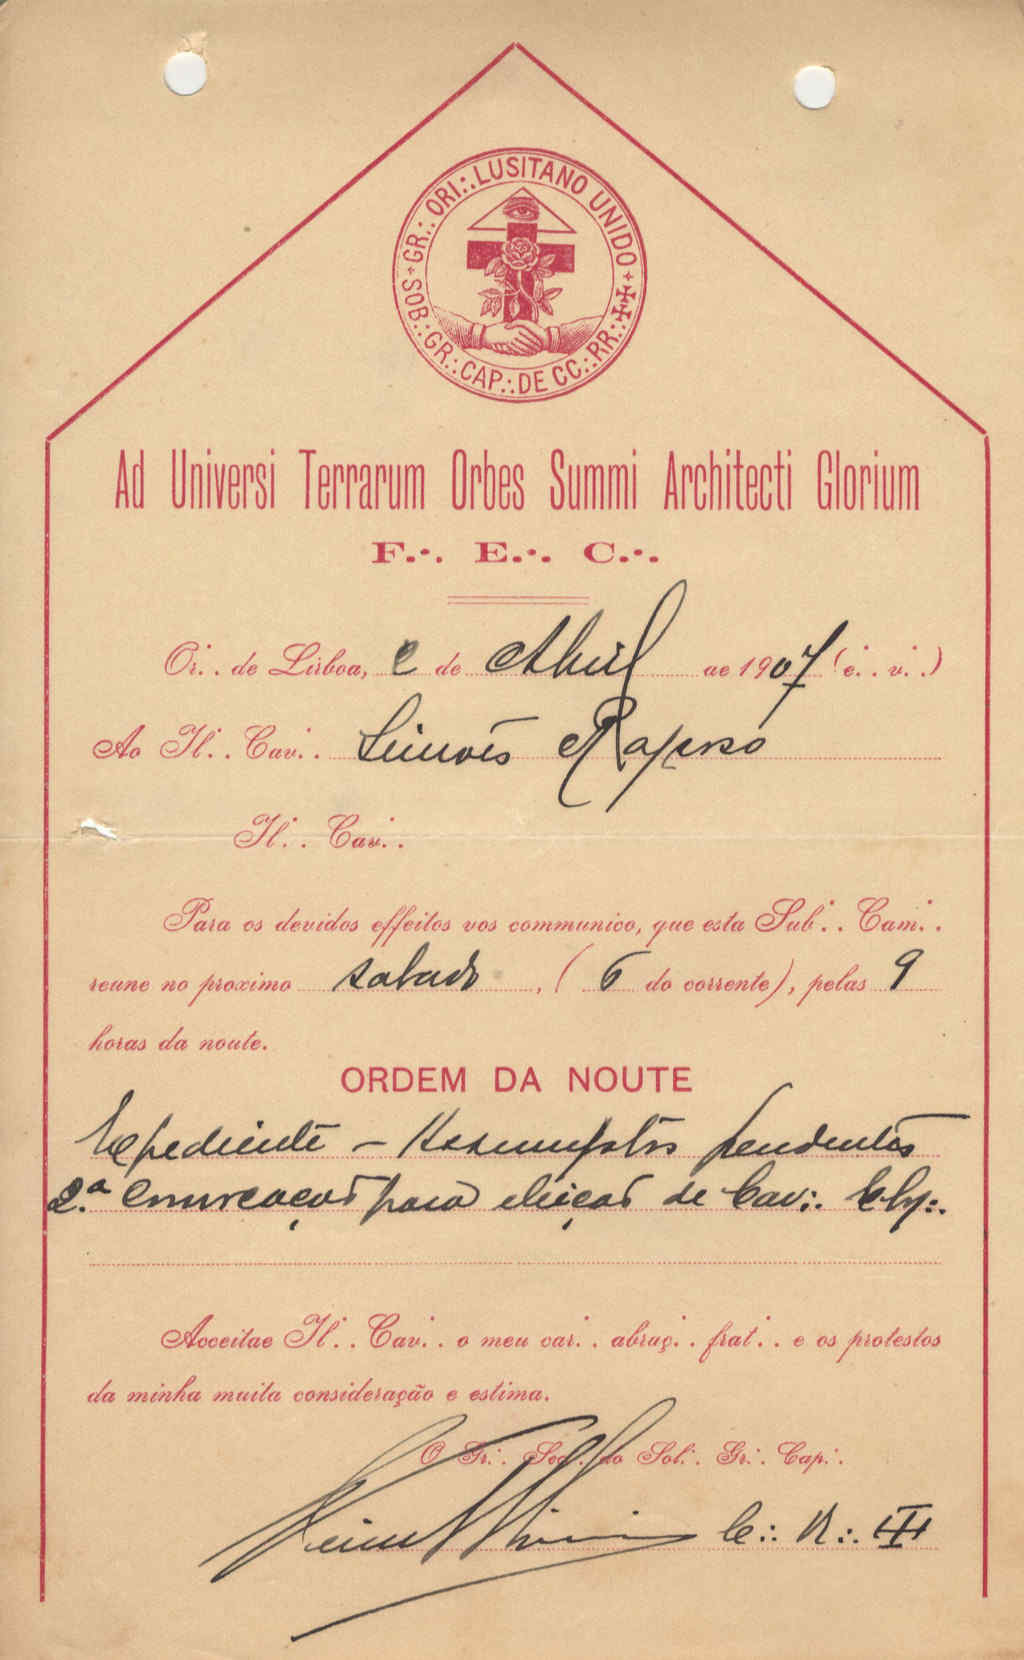 GR.·. ORI.·. LUSITANO UNIDO
SOB.·. GR.·. CAP.·. DE CC.·. RR.·.
Ad Universi Terrarum Orbes Summi Architecti Glorium
F.·. E.·. C.·.
Or.·. de Lisboa, 2 de Abril de 1907 (e.·. v.·.)
Ao Il.·. Cav.·. Simões Raposo
Il.·. Cav.·.
Para os devidos effeitos vos communico, que esta Sub.·. Cam.·.
reune no proximo sabado, (6 do corrente), pelas 9
horas da noute.
ORDEM DA NOUTE
Expediente – Assumptos pendentes
2.ª convocação para eleição de Cav.·.
Acceitae Il.·. Cav.·. o meu car.·. abraç.·. frat.·. e os protestos
da minha muita consideração e estima.
O Gr.·. Sec.·. do Sob.·. Gr.·. Cap.·.
C.·. R.·.